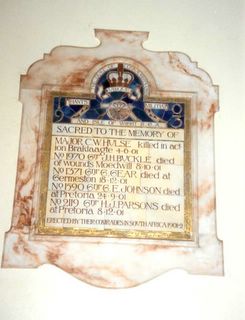 HANTS
MILITIA
AND ISLE OF WIGHT R.G.A.
SACRED TO THE MEMORY OF
MAJOR C.W.HULSE killed in act
ion Braklaagte 4-6-01
No 1970 Gnr J.H.BUCKLE died
of wounds Moedwill 8-10-01
No 1371 Gnr G.GEAR died at
Germeston 18-12-01
No 1590 Gnr G.E.JOHNSON died
at Pretoria 24-9-01
No 2119 Gnr H.J.PARSONS died
at Pretoria 8-12-01
ERECTED BY THEIR COMRADES IN SOUTH AFRICA 1901-2